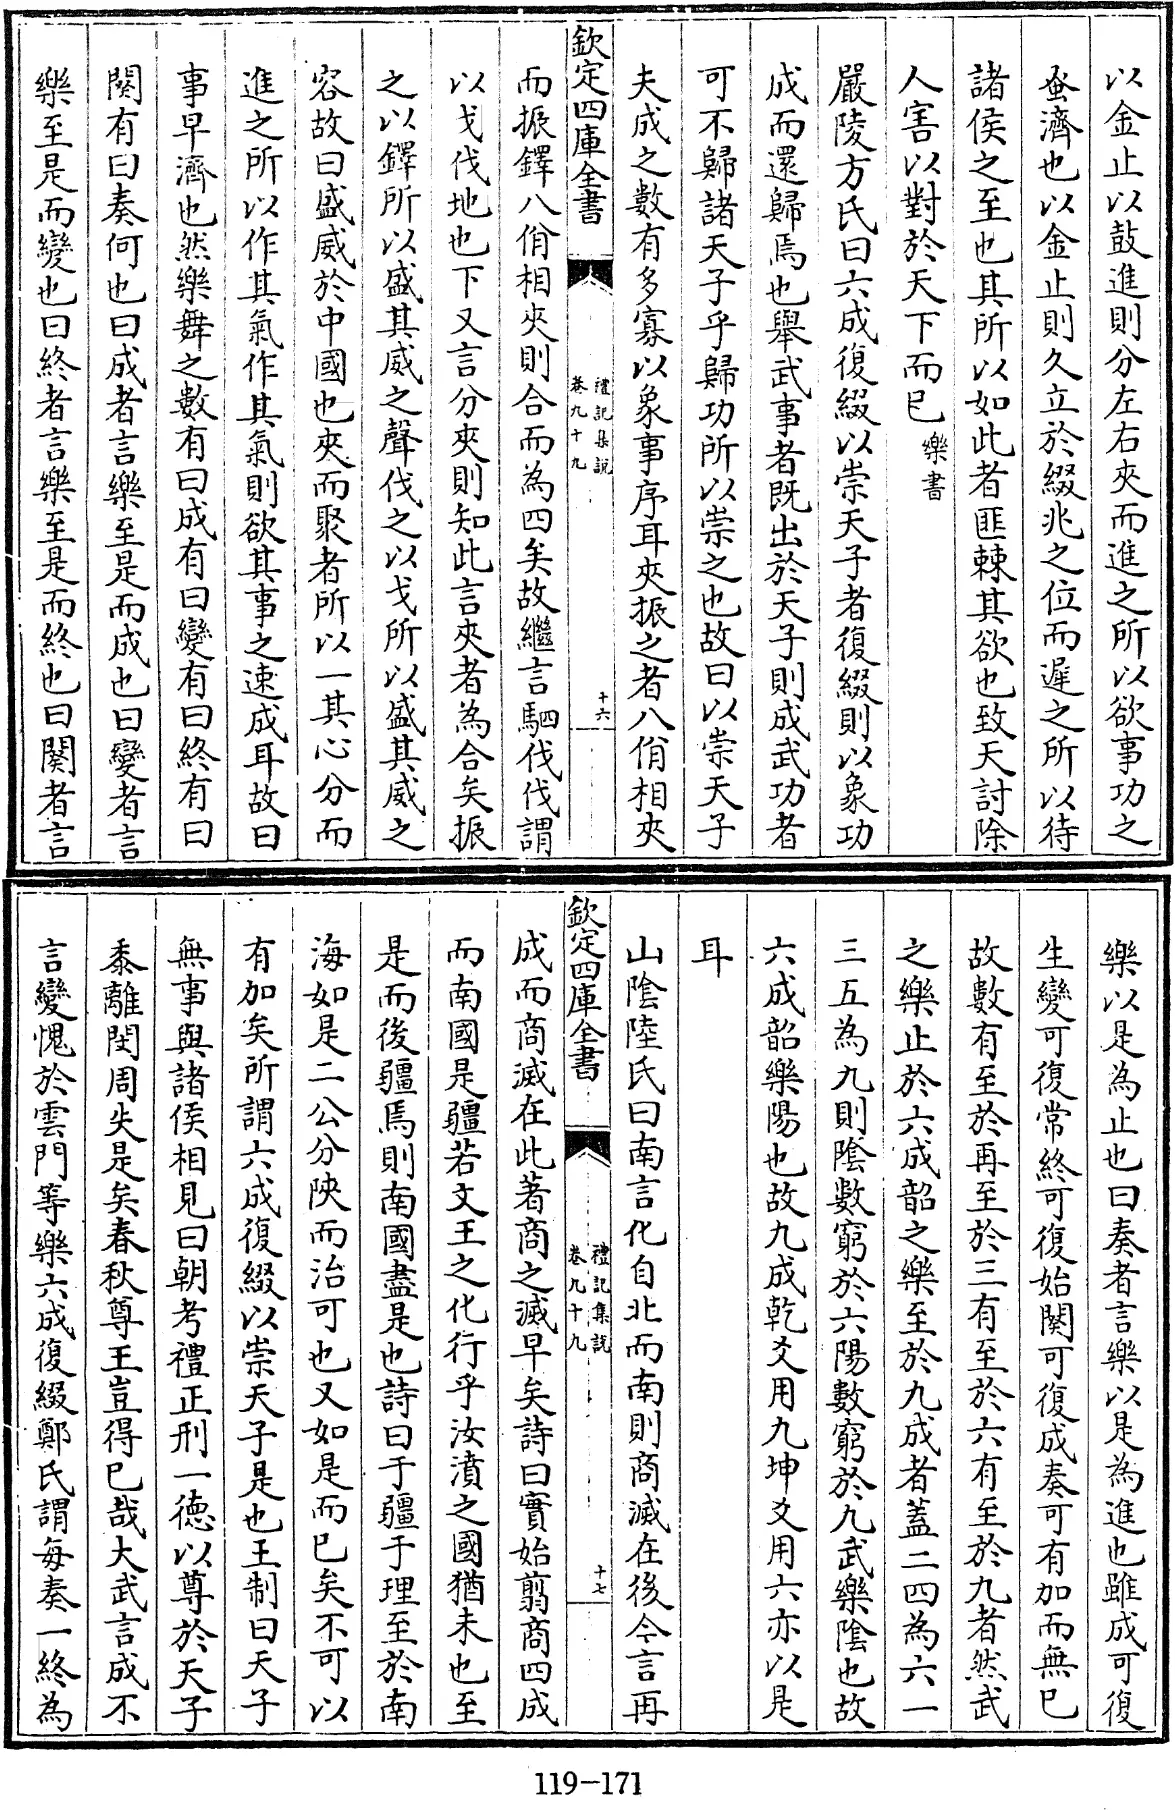 以金止以鼓進則分左右夾而進之所以欲事功之
蚤濟也以金止則久立於綴兆之位而遲之所以待
諸侯之至也其所以如此者匪棘其欲也致天討除
人害以對於天下而已樂書
嚴陵方氏曰六成復綴以崇天子者復綴則以象功
成而還歸焉也舉武事者既出於天子則成武功者
可不歸諸天子乎歸功所以崇之也故曰以崇天子
夫成之數有多寡以象事序耳夾振之者八佾相夾
欽定四庫全書
禮記集說
卷九十九
十六
而振鐸八佾相夾則合而為四矣故繼言駟伐伐謂
以戈伐地也下又言分夾則知此言夾者為合矣振
之以鐸所以盛其威之聲伐之以戈所以盛其威之
容故曰盛威於中國也夾而聚者所以一其心分而
進之所以作其氣作其氣則欲其事之速成耳故曰
事早濟也然樂舞之數有曰成有曰變有曰終有曰
闋有曰奏何也曰成者言樂至是而成也曰變者言
樂至是而變也曰終者言樂至是而終也曰闋者言
樂以是為止也曰奏者言樂以是為進也雖成可復
生變可復常終可復始闋可復成奏可有加而無已
故數有至於再至於三有至於六有至於九者然武
之樂止於六成韶之樂至於九成者蓋二四為六一
三五為九則陰數窮於六陽數窮於九武樂陰也故
六成韶樂陽也故九成乾爻用九坤爻用六亦以是
耳
山陰陸氏曰南言化自北而南則商滅在後今言再
欽定四庫全書
禮記集說
卷九十九
十七
成而商滅在此著商之滅早矣詩曰實始翦商四成
而南國是疆若文王之化行乎汝濆之國猶未也至
是而後疆焉則南國盡是也詩曰于疆于理至於南
海如是二公分陝而治可也又如是而已矣不可以
有加矣所謂六成復綴以崇天子是也王制曰天子
無事與諸侯相見曰朝考禮正刑一德以尊於天子
黍離閔周失是矣春秋尊王豈得已哉大武言成不
言變愧於雲門等樂六成復綴鄭氏謂每奏一終為
119-171